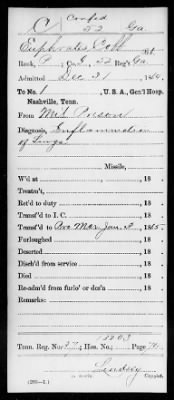 C Confed
52 Ga.
Euphrates Pitt
Rank, P ; Co. E, 52 Reg't Ga
Admitted Dec 21, 1864.
To No. 1, U.S.A., Gen'l Hosp.
Nashville, Tenn.
From Mil. Prison
Diagnosis, Inflammation
of Lungs
Missile,
W'd at , 18 .
Treatm't,
Ret'd to duty , 18 .
Transf'd to I. C. , 18 .
Transf'd to Pro Mar Jan. 3, 1865.
Furloughed , 18 .
Deserted , 18 .
Disch'd from service , 18 .
Died , 18 .
Re-adm'd from furlo' or des'n , 18 .
Remarks:
Tenn. Reg. No. ; Hos. No. ; Page
Lindsey
Copyist.